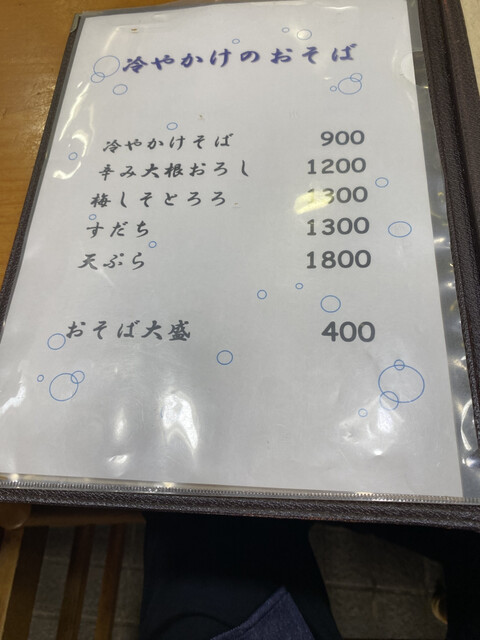 冷やかけのおそば
冷やかけそば 900
辛み大根おろし 1200
梅しそとろろ 1300
すだち 1300
天ぷら 1800
おそば大盛 400